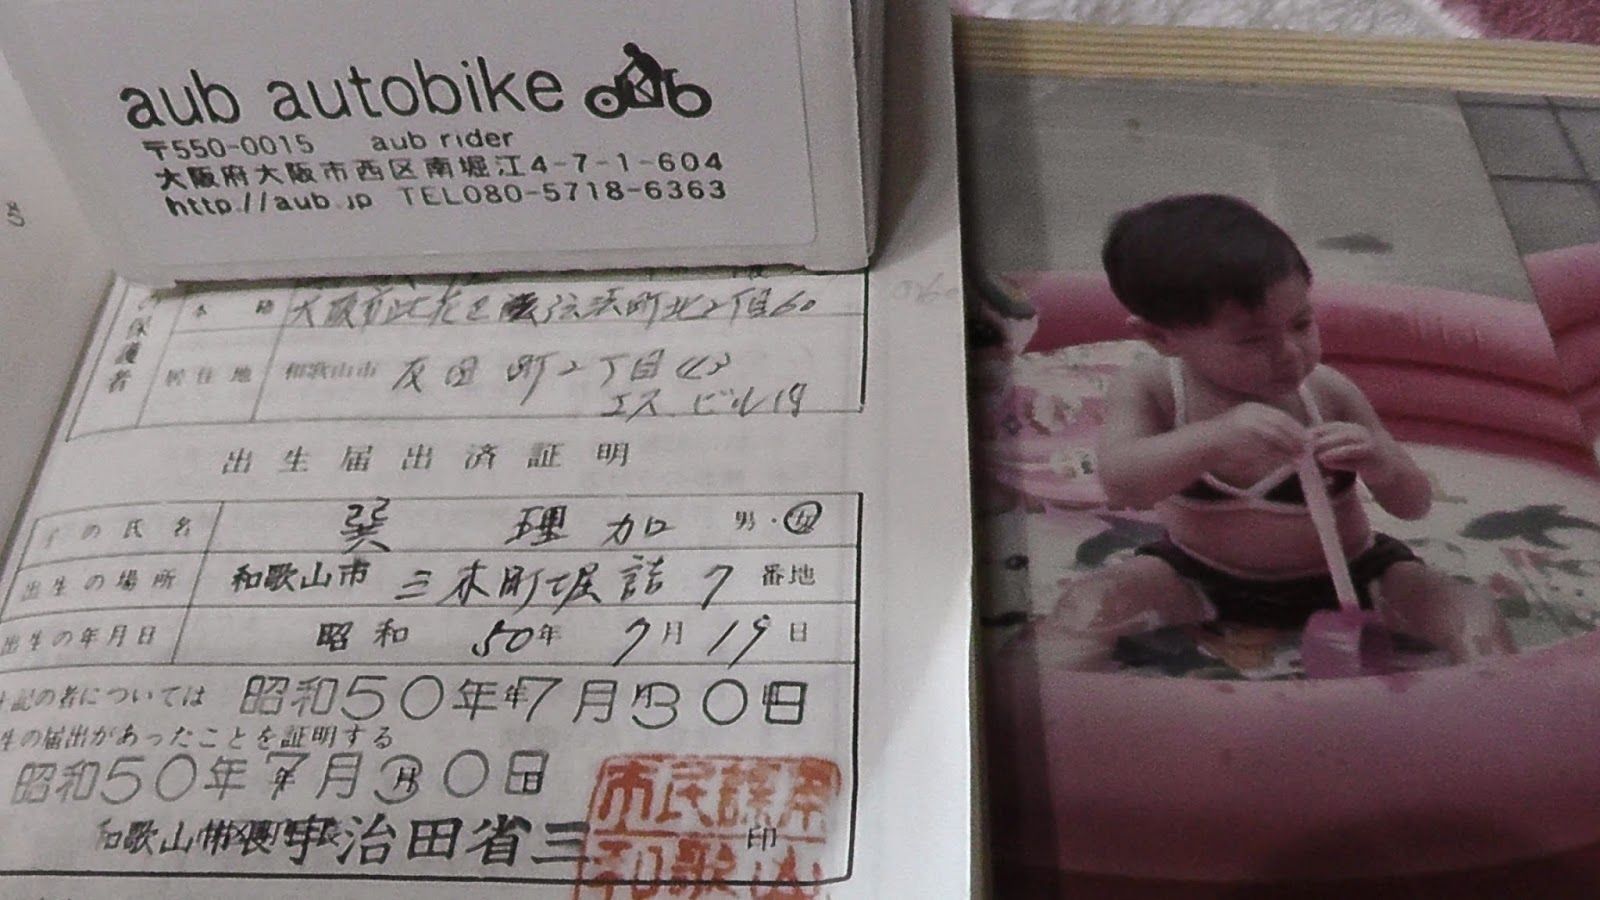 aub autobike
〒550-0015 aub rider
大阪府大阪市西区南堀江4-7-1-604
http://aub.jp TEL080-5718-6363
の保護者
本籍
町北2丁目60
居住地 和歌山市 友田町2丁目43
エスビル19
出生届出済証明
子の氏名 巽 理加 男・女
出生の場所 和歌山市 三木町堀詰 7 番地
出生の年月日 昭和 50年 7月 19日
上記の者については 昭和50年7月30日
生の届出があったことを証明する
昭和50年7月30日
和歌山市 宇治田省三 印
市民課
和歌山